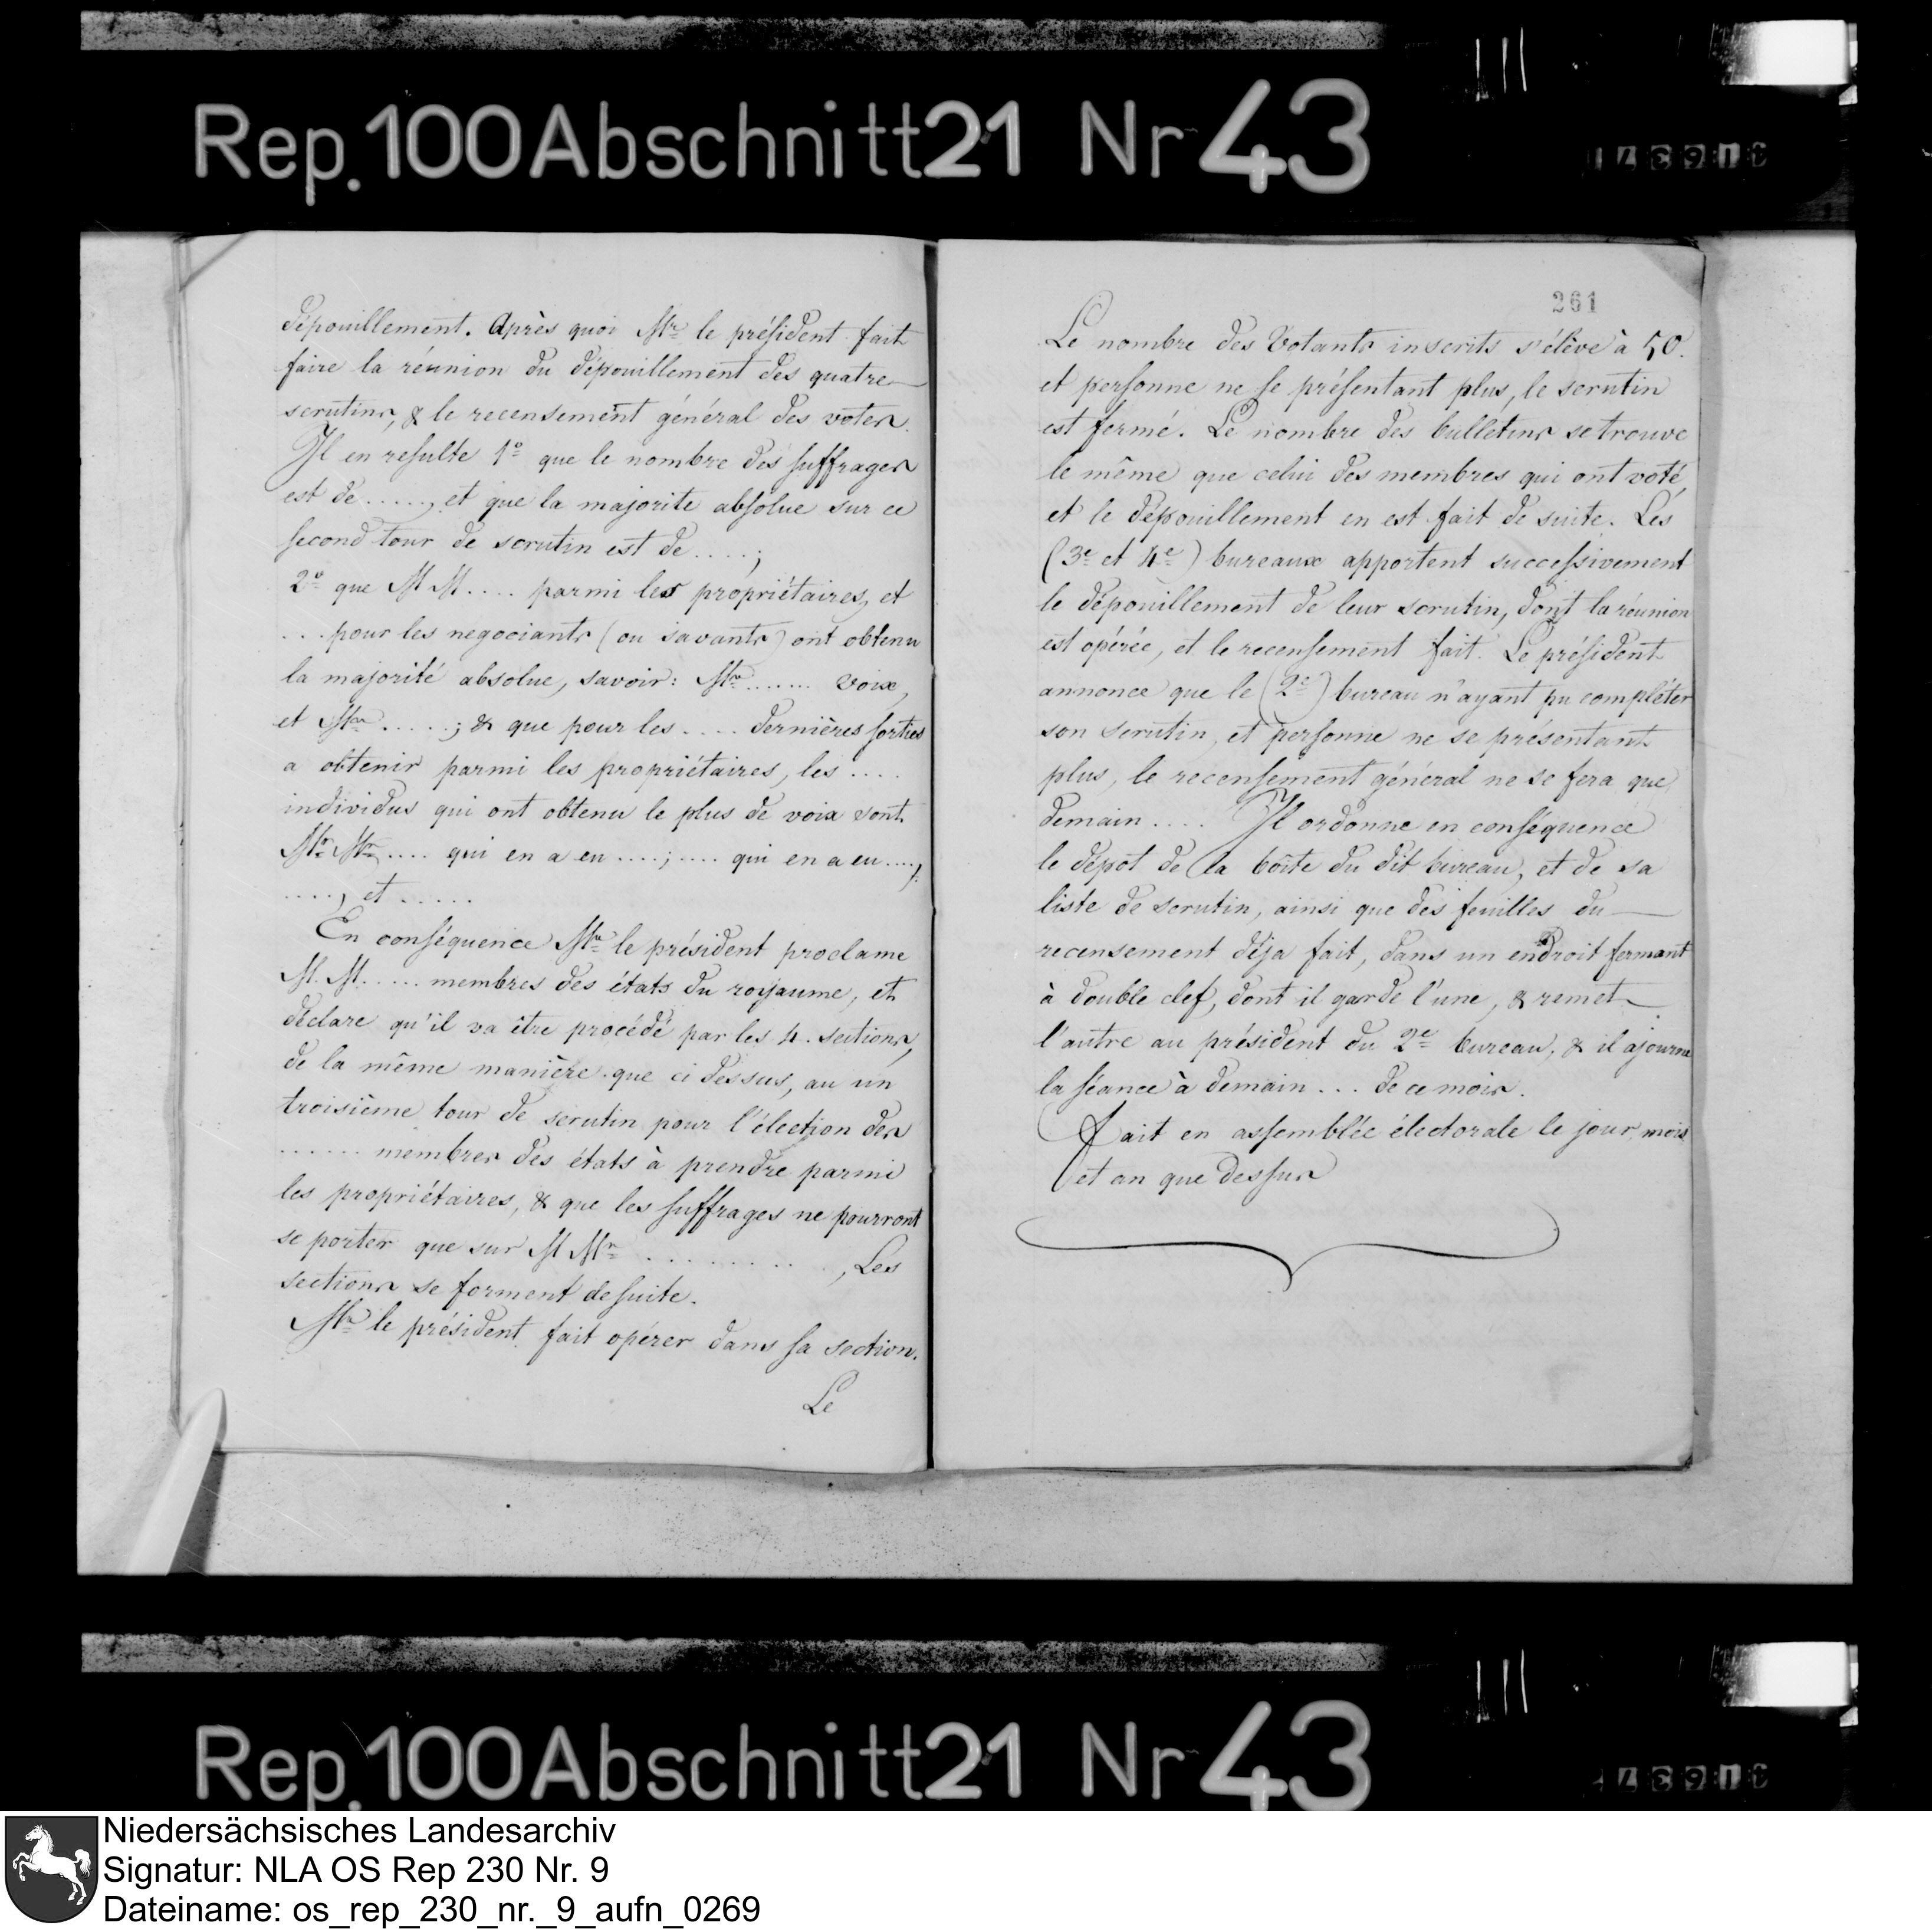 Rep. 100 Abschnitt 21 Nr 43
dépouillement. Après quoi Mr le président fait
faire la réunion du dépouillement des quatre
scrutins, & le recensement général des votes.
Il en resulte 1o que le nombre des suffrages
est de ....., et que la majorite absolue sur ce
second tour de scrutin est de ....;
2o que M M .... parmi les propriétaires, et
... pour les negociants (ou savants) ont obtenu
la majorité absolue, savoir: Mr ...... voix,
et Mr .....; & que pour les .... dernières sorties
a obtenir parmi les propriétaires, les ....
individus qui ont obtenu le plus de voix sont
Mr Mr .... qui en a eu ....; .... qui en a eu ....,
...., et .....
En conséquence Mr le président proclame
M. M. ..... membres des états du royaume, et
déclare qu'il va être procédé par les 4. sections,
de la même manière que ci dessus, au un
troisième tour de scrutin pour l'élection des
...... membres des états à prendre parmi
les propriétaires, & que les suffrages ne pourront
se porter que sur M Mr ........., Les
sections se forment de suite.
Mr le président fait opérer dans sa section.
Le
261
Le nombre des Votants inscrits s'élève à 50.
et personne ne se présentant plus, le scrutin
est fermé. Le nombre des bulletins se trouve
le même que celui des membres qui ont voté,
et le dépouillement en est fait de suite. Les
(3e et 4e) bureaux apportent successivement
le dépouillement de leur scrutin, dont la réunion
est opérée, et le recensement fait. Le président
annonce que le (2e) bureau n'ayant pu compléter
son scrutin, et personne ne se présentant
plus, le recensement général ne se fera que
demain .... Il ordonne en conséquence
le dépot de la boîte du dit bureau, et de sa
liste de scrutin, ainsi que des feuilles du
recensement déja fait, dans un endroit fermant
à double clef, dont il garde l'une, & remet
l'autre au président du 2e bureau, & il ajourne
la séance à demain ... de ce mois.
Fait en assemblée électorale le jour, mois
et an que dessus
Rep. 100 Abschnitt 21 Nr 43
Niedersächsisches Landesarchiv
Signatur: NLA OS Rep 230 Nr. 9
Dateiname: os_rep_230_nr._9_aufn_0269